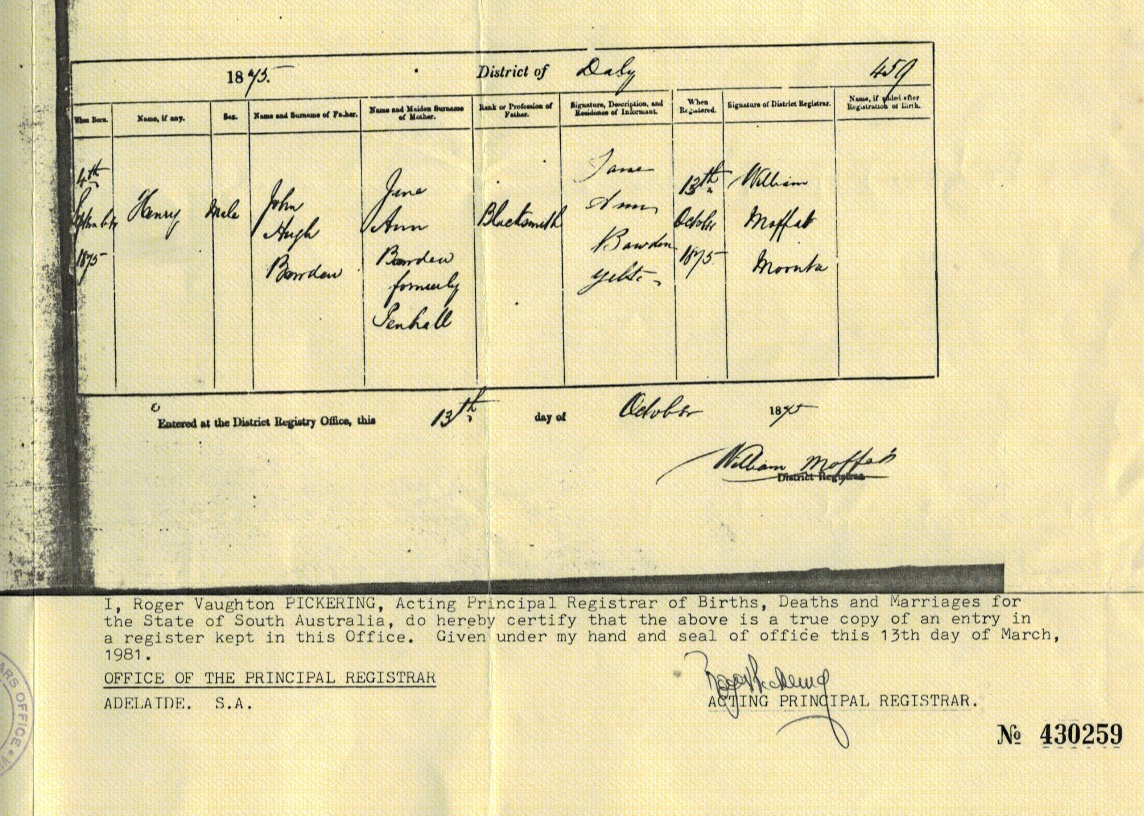 1875. District of Daly 459
When Born. Name, if any. Sex. Name and Surname of Father. Name and Maiden Surname of Mother. Rank or Profession of Father. Signature, Description, and Residence of Informant. When Registered. Signature of District Registrar. Name, if added after Registration of Birth.
4th September 1875
Henry
Male
John
Hugh
Bawden
Jane
Ann
Bawden
formerly
Penhall
Blacksmith
Jane
Ann
Bawden
13th
October
1875
William
Moffat
Moonta
Entered at the District Registry Office, this 13th day of October 1875
William Moffat
District Registrar.
I, Roger Vaughton PICKERING, Acting Principal Registrar of Births, Deaths and Marriages for
the State of South Australia, do hereby certify that the above is a true copy of an entry in
a register kept in this Office. Given under my hand and seal of office this 13th day of March,
1981.
OFFICE OF THE PRINCIPAL REGISTRAR
ADELAIDE. S.A.
Roger Pickering
ACTING PRINCIPAL REGISTRAR.
№ 430259
ARS OFFICE